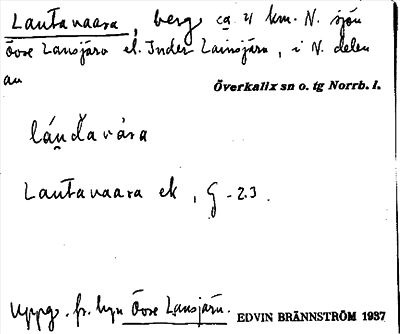 Lautavaara, berg ca 4 km. N. sjön
Övre Lansjärv el. Inder Lainsjärv, i N. delen
av
Överkalix sn o. tg Norrb. l.
Lautavaara ek, G-23.
Uppg. fr. byn Övre Lansjärv.
EDVIN BRÄNNSTRÖM 1937